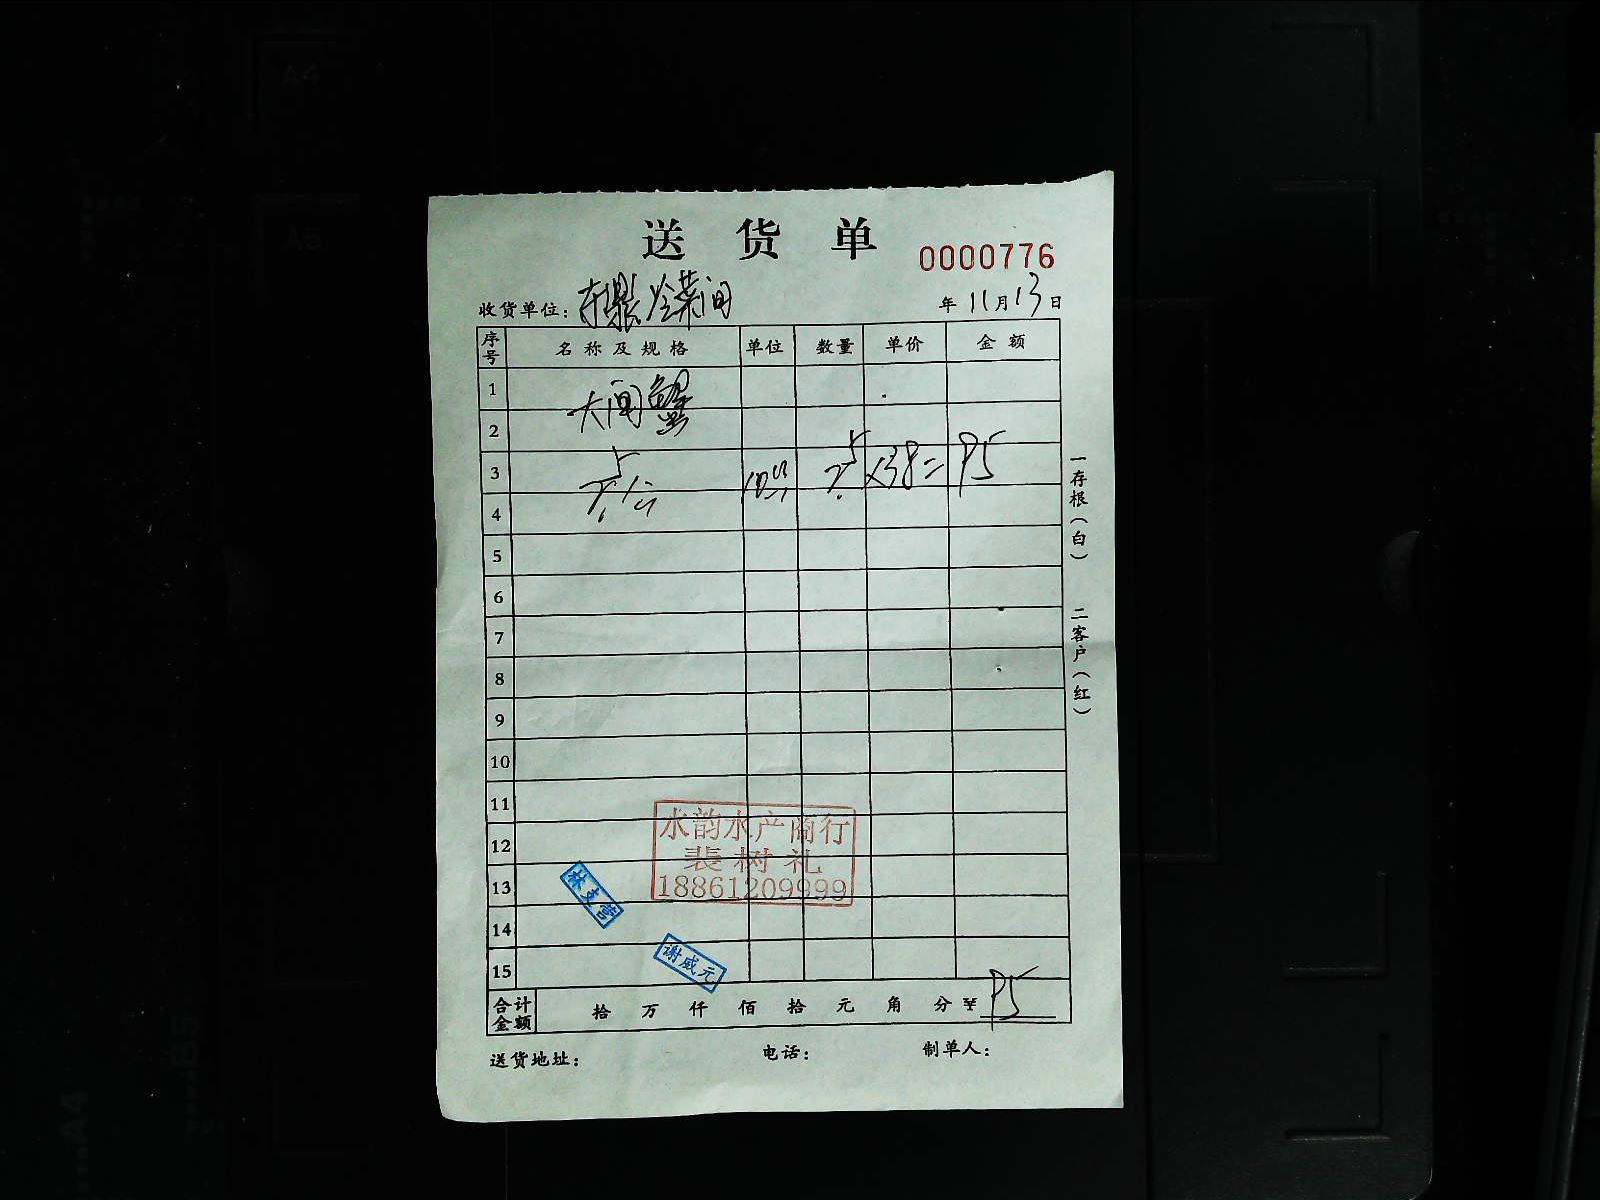 送货单
0000776
收货单位: 冷菜间
年 11月13日
序号 名称及规格 单位 数量 单价 金额
1 大闸蟹
2
3 2.5 ×38= 95
4
5
6
7
8
9
10
11
12
13
14
15
合计金额 拾 万 仟 佰 拾 元 角 分 ¥ 95
送货地址: 电话: 制单人:
一存根(白) 二客户(红)
水韵水产商行
裴树礼
18861209999
林支营
谢威元
A4
A5
B5
A4